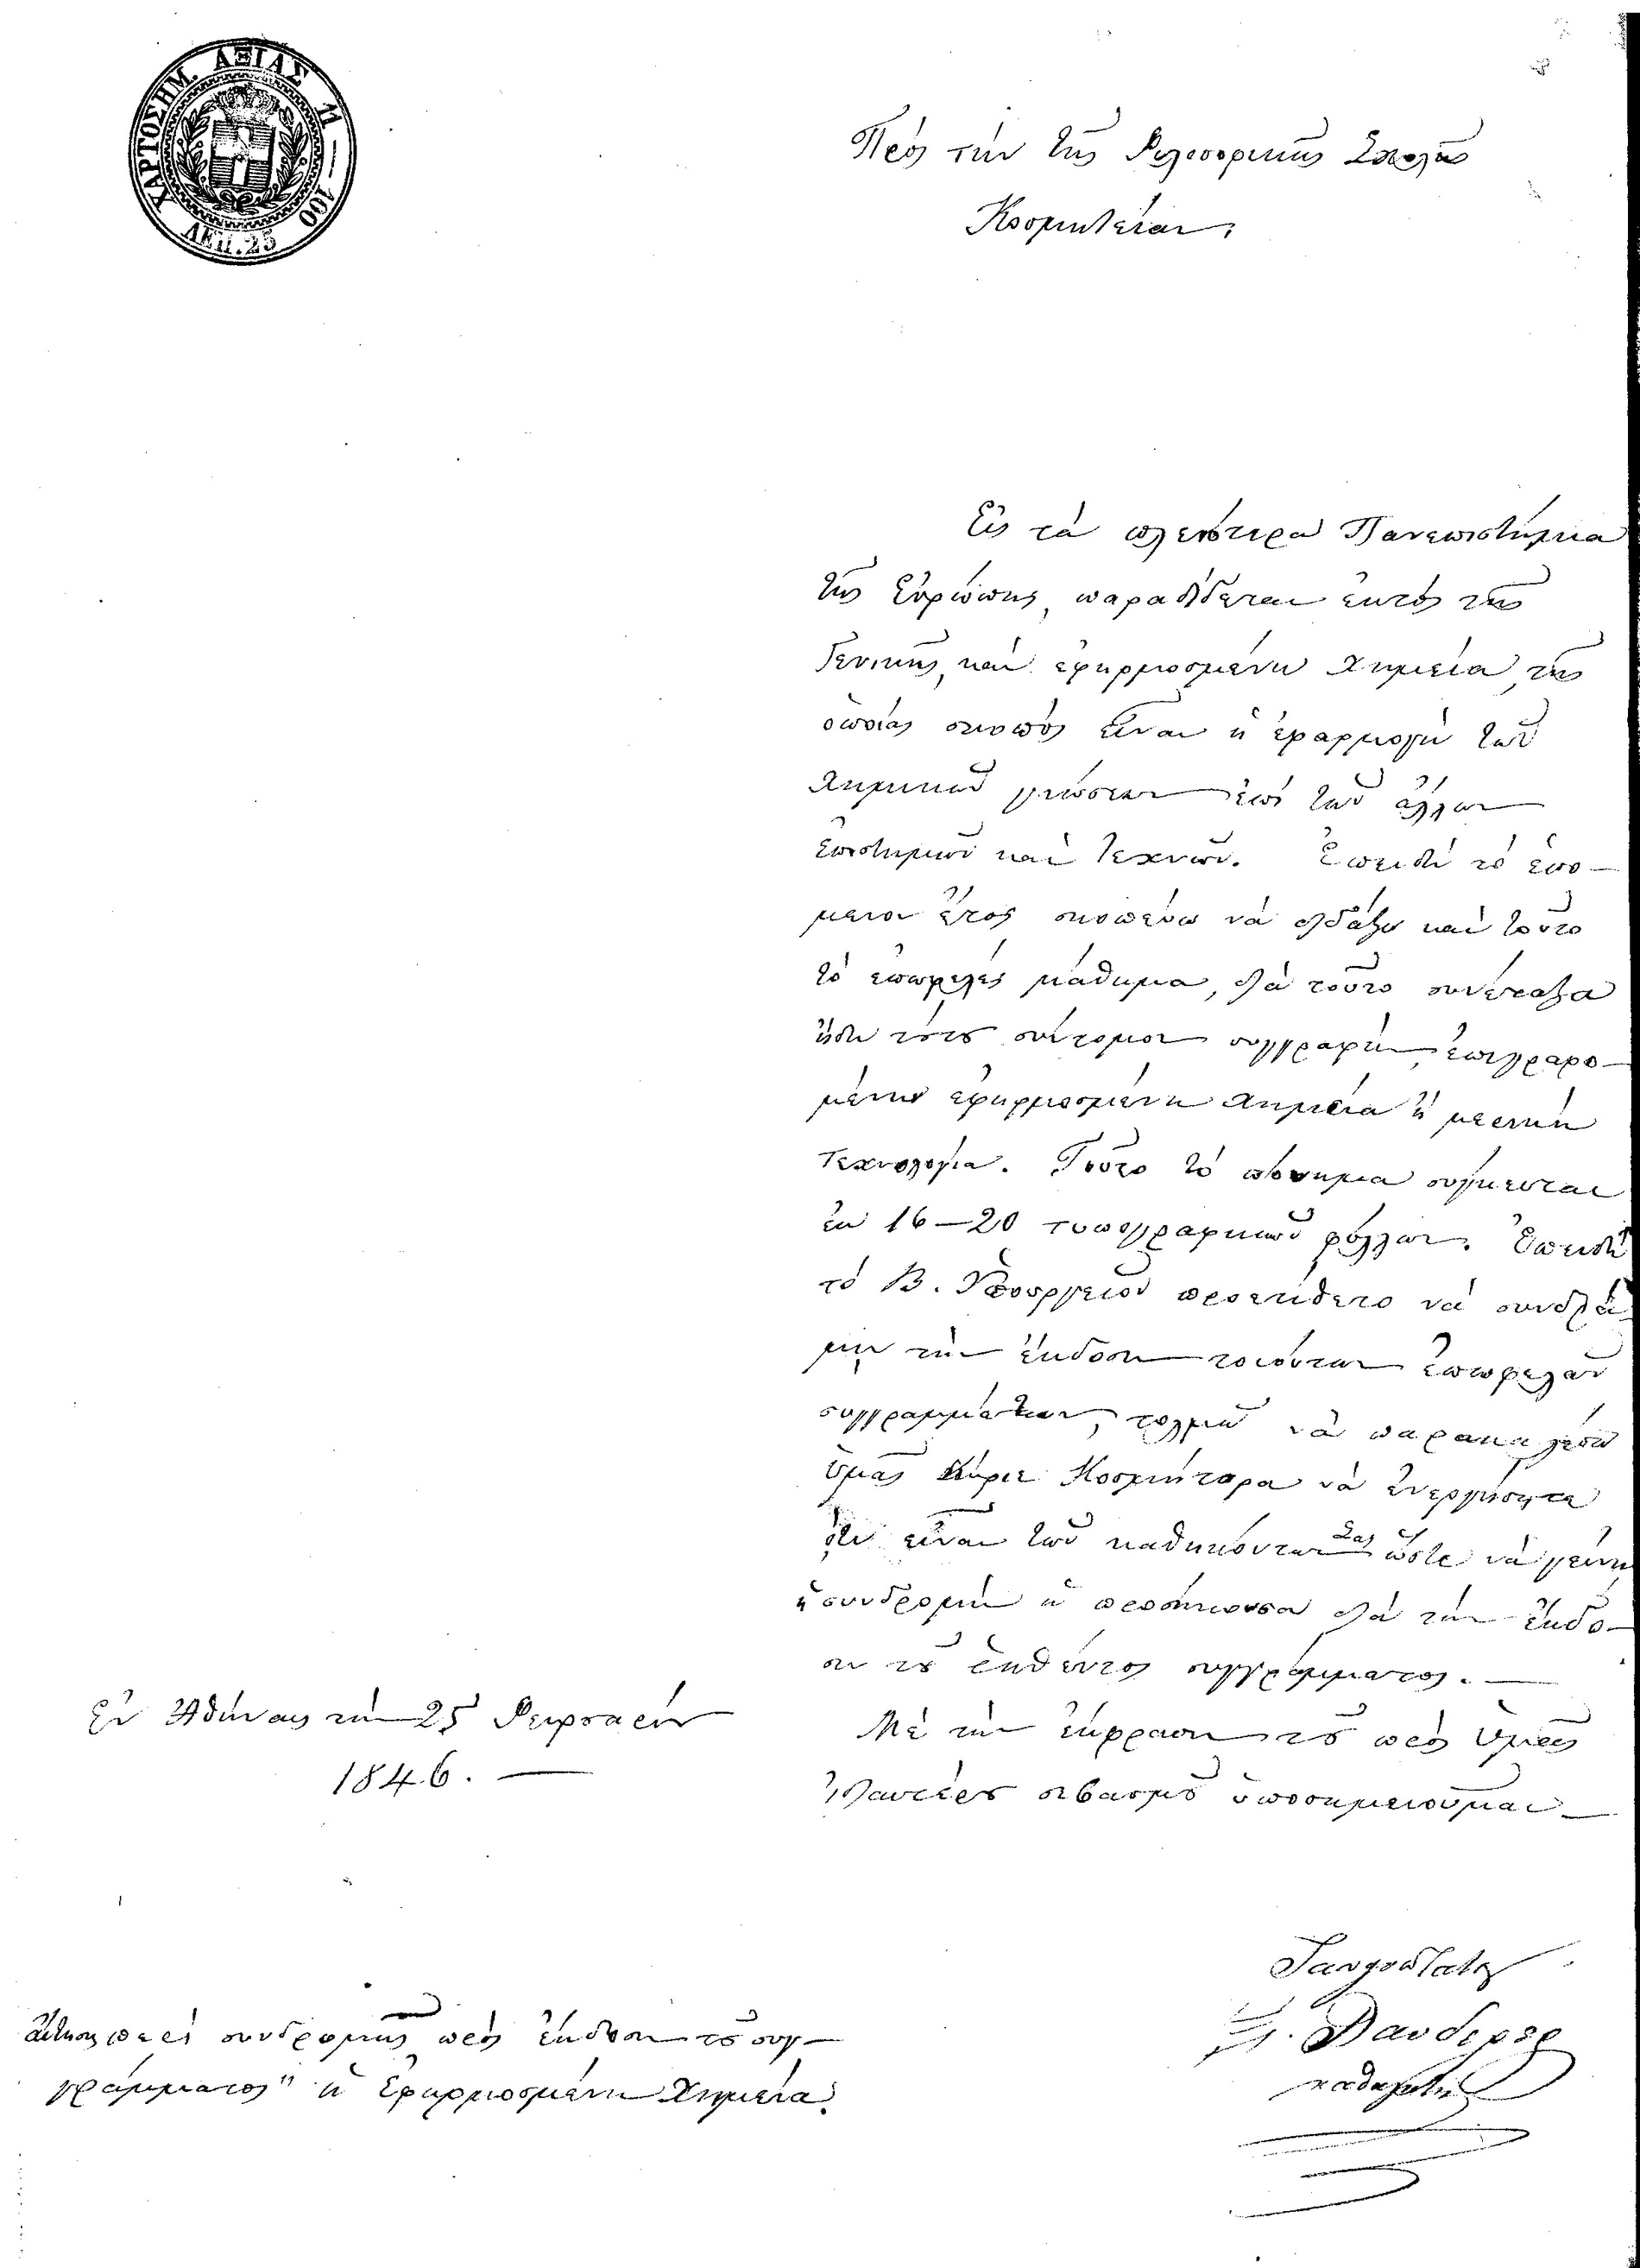 ΧΑΡΤΟΣΗΜ. ΑΞΙΑΣ 11—100
ΛΕΠ. 25
Πρὸς τὴν τῆς Φιλοσοφικῆς Σχολῆς
Κοσμητείαν,
Εἰς τὰ πλειότερα Πανεπιστήμια
τῆς Εὐρώπης, παραδίδεται ἐκτὸς τῆς
Γενικῆς, καὶ ἐφηρμοσμένη Χημεία, τῆς
ὁποίας σκοπὸς εἶναι ἡ ἐφαρμογὴ τῶν
Χημικῶν γνώσεων ἐπὶ τῶν ἄλλων
ἐπιστημῶν καὶ Τεχνῶν. Ἐπειδὴ τὸ ἑπό—
μενον ἔτος σκοπεύω νὰ διδάξω καὶ τοῦτο
τὸ ἐπωφελὲς μάθημα, διὰ τοῦτο συνέταξα
ἤδη σύντομον συγγραφὴν, ἐπιγραφο—
μένην ἐφηρμοσμένη Χημεία ἢ μερικὴ
Τεχνολογία. Τοῦτο τὸ πόνημα σύγκειται
ἐκ 16—20 τυπογραφικῶν φύλλων. Ἐπειδὴ
τὸ Β. Ὑπουργεῖον προετίθετο νὰ συνδρά
μῃ τὴν ἔκδοσιν τοιούτων ἐπωφελῶν
συγγραμμάτων, τολμῶ νὰ παρακαλέσω
ὑμᾶς Κύριε Κοσμήτορα νὰ ἐνεργήσητε
ὅ,τι εἶναι τῶν καθηκόντων Σας ὥστε νὰ γείνῃ
ἡ συνδρομὴ ἡ προσήκουσα διὰ τὴν ἔκδο—
σιν τοῦ ῥηθέντος συγγράμματος.—
Μὲ τὴν ἔκφρασιν τοῦ πρὸς Ὑμᾶς
σεβασμοῦ ὑποσημειοῦμαι—
Ἐν Ἀθήναις τὴν 25 Φεβρουαρίου
1846.—
Ξ. Λάνδερερ
καθηγητὴς
Αἴτησις περὶ συνδρομῆς πρὸς ἔκδοσιν τοῦ συγ—
γράμματος" ἡ Ἐφηρμοσμένη Χημεία.